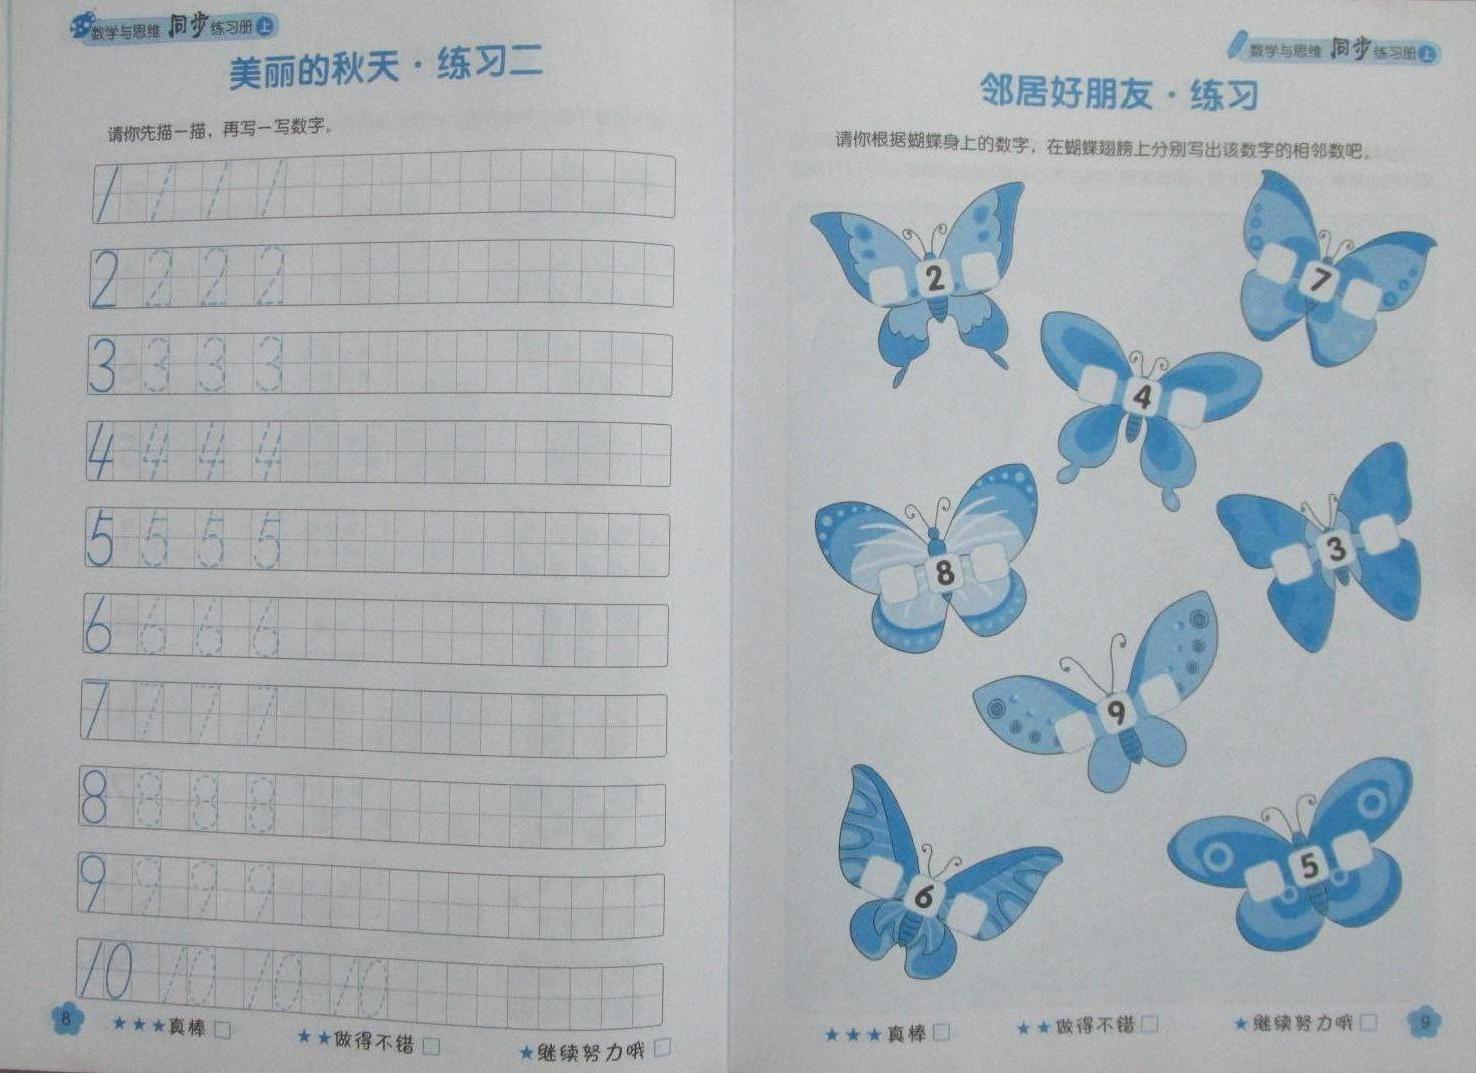 数学与思维 同步 练习册 上
美丽的秋天·练习二
请你先描一描，再写一写数字。
1 1 1 1
2 2 2 2
3 3 3 3
4 4 4 4
5 5 5 5
6 6 6 6
7 7 7 7
8 8 8 8
9 9 9 9
10 10 10 10
8
★★★真棒□
★★做得不错□
★继续努力哦□
数学与思维 同步 练习册 上
邻居好朋友·练习
请你根据蝴蝶身上的数字，在蝴蝶翅膀上分别写出该数字的相邻数吧。
2
7
4
8
3
9
6
5
★★★真棒□
★★做得不错□
★继续努力哦□
9